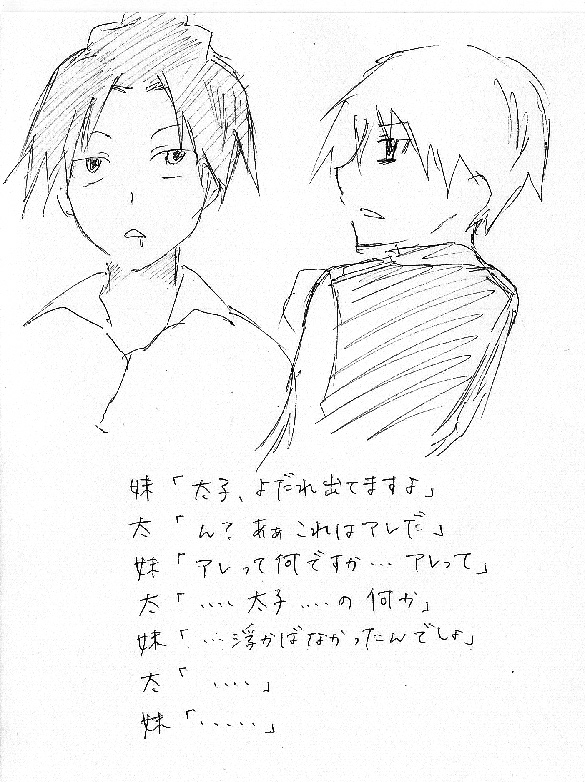 妹「太子、よだれ出てますよ」
太「ん？あぁこれはアレだ」
妹「アレって何ですか…アレって」
太「‥‥太子‥‥の何か」
妹「…浮かばなかったんでしょ」
太「‥‥」
妹「‥‥‥」